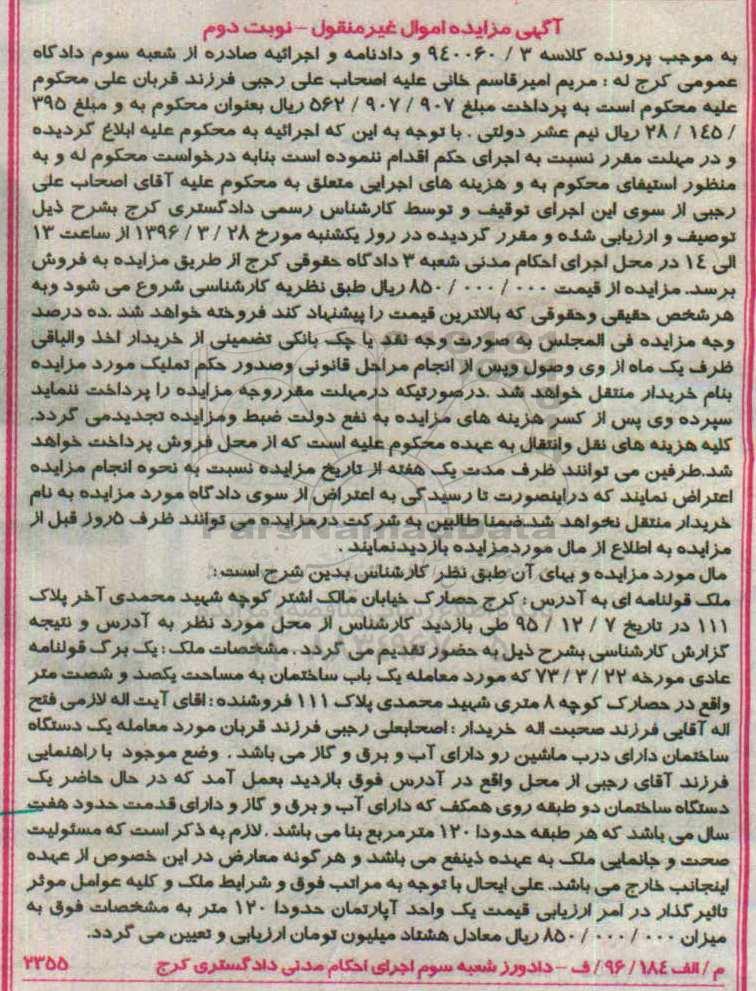 آگهی مزایده اموال غیرمنقول - نوبت دوم
به موجب پرونده کلاسه ۳ / ۹٤۰۰٦۰ و دادنامه و اجرائیه صادره از شعبه سوم دادگاه
عمومی کرج له : مریم امیرقاسم خانی علیه اصحاب علی رجبی فرزند قربان علی محکوم
علیه محکوم است به پرداخت مبلغ ۹۰۷ / ۹۰۷ / ۵۶۲ ریال بعنوان محکوم به و مبلغ ۳۹۵
/ ۱٤۵ / ۲۸ ریال نیم عشر دولتی . با توجه به این که اجرائیه به محکوم علیه ابلاغ گردیده
و در مهلت مقرر نسبت به اجرای حکم اقدام ننموده است بنابه درخواست محکوم له و به
منظور استیفای محکوم به و هزینه های اجرایی متعلق به محکوم علیه آقای اصحاب علی
رجبی از سوی این اجرای توقیف و توسط کارشناس رسمی دادگستری کرج بشرح ذیل
توصیف و ارزیابی شده و مقرر گردیده در روز یکشنبه مورخ ۲۸ / ۳ / ۱۳۹۶ از ساعت ۱۳
الی ۱٤ در محل اجرای احکام مدنی شعبه ۳ دادگاه حقوقی کرج از طریق مزایده به فروش
برسد. مزایده از قیمت ۰۰۰ / ۰۰۰ / ۸۵۰ ریال طبق نظریه کارشناسی شروع می شود وبه
هرشخص حقیقی وحقوقی که بالاترین قیمت را پیشنهاد کند فروخته خواهد شد .ده درصد
وجه مزایده فی المجلس به صورت وجه نقد یا چک بانکی تضمینی از خریدار اخذ والباقی
ظرف یک ماه از وی وصول وپس از انجام مراحل قانونی وصدور حکم تملیک مورد مزایده
بنام خریدار منتقل خواهد شد .درصورتیکه درمهلت مقرروجه مزایده را پرداخت ننماید
سپرده وی پس از کسر هزینه های مزایده به نفع دولت ضبط ومزایده تجدیدمی گردد.
کلیه هزینه های نقل وانتقال به عهده محکوم علیه است که از محل فروش پرداخت خواهد
شد.طرفین می توانند ظرف مدت یک هفته از تاریخ مزایده نسبت به نحوه انجام مزایده
اعتراض نمایند که دراینصورت تا رسیدگی به اعتراض از سوی دادگاه مورد مزایده به نام
خریدار منتقل نخواهد شد.ضمنا طالبین به شرکت درمزایده می توانند ظرف ۵روز قبل از
مزایده به اطلاع از مال موردمزایده بازدیدنمایند .
مال مورد مزایده و بهای آن طبق نظر کارشناس بدین شرح است :
ملک قولنامه ای به آدرس : کرج حصارک خیابان مالک اشتر کوچه شهید محمدی آخر پلاک
۱۱۱ در تاریخ ۷ / ۱۲ / ۹۵ طی بازدید کارشناس از محل مورد نظر به آدرس و نتیجه
گزارش کارشناسی بشرح ذیل به حضور تقدیم می گردد . مشخصات ملک : یک برگ قولنامه
عادی مورخه ۲۲ / ۳ / ۷۳ که مورد معامله یک باب ساختمان به مساحت یکصد و شصت متر
واقع در حصارک کوچه ۸ متری شهید محمدی پلاک ۱۱۱ فروشنده : اقای آیت اله لازمی فتح
اله آقایی فرزند صحبت اله خریدار : اصحابعلی رجبی فرزند قربان مورد معامله یک دستگاه
ساختمان دارای درب ماشین رو دارای آب و برق و گاز می باشد . وضع موجود با راهنمایی
فرزند آقای رجبی از محل واقع در آدرس فوق بازدید بعمل آمد که در حال حاضر یک
دستگاه ساختمان دو طبقه روی همکف که دارای آب و برق و گاز و دارای قدمت حدود هفت
سال می باشد که هر طبقه حدودا ۱۲۰ مترمربع بنا می باشد . لازم به ذکر است که مسئولیت
صحت و جانمایی ملک به عهده ذینفع می باشد و هرگونه معارض در این خصوص از عهده
اینجانب خارج می باشد. علی ایحال با توجه به مراتب فوق و شرایط ملک و کلیه عوامل موثر
تاثیرگذار در امر ارزیابی قیمت یک واحد آپارتمان حدودا ۱۲۰ متر به مشخصات فوق به
میزان ۰۰۰ / ۰۰۰ / ۸۵۰ ریال معادل هشتاد میلیون تومان ارزیابی و تعیین می گردد.
م / الف ۱۸٤ / ۹۶ / ف - دادورز شعبه سوم اجرای احکام مدنی دادگستری کرج ۲۳۵۵